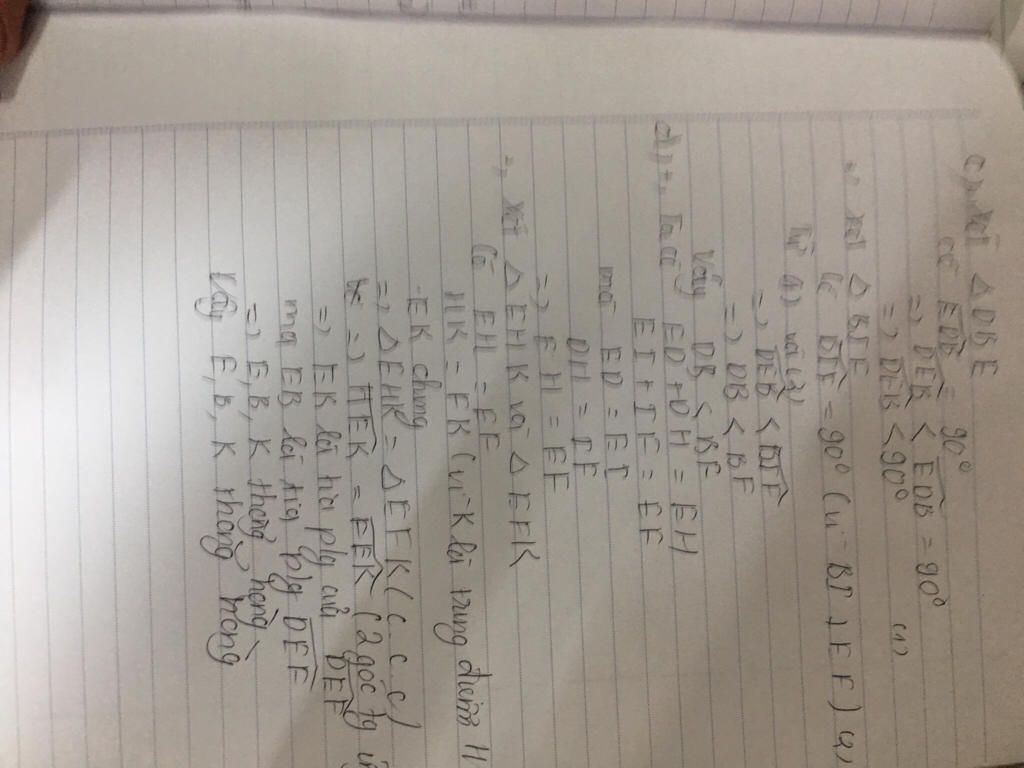 c) Xét △DBE
có EDB = 90°
=> DEB < EDB = 90°
=> DEB < 90° (1)
Xét △BIF
có BIF = 90° (vì BI ⊥ EF) (2)
Từ (1) và (2)
=> DEB < BIF
=> DB < BF
Vậy DB < BF
d) Ta có ED + DH = EH
EI + IF = EF
mà ED = EI
DH = IF
=> EH = EF
=> Xét △EHK và △EFK
Có EH = EF
HK = FK (vì K là trung điểm H
- EK chung
=> △EHK = △EFK (c.c.c)
=> HEK = FEK (2 góc tg ứ
=> EK là tia p/g của DEF
mà EB là tia p/g DEF
=> E, B, K thẳng hàng
Vậy E, B, K thẳng hàng